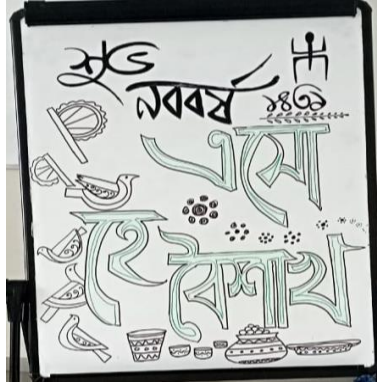 শুভ
নববর্ষ ১৪৩১
এসো
হে
বৈশাখ